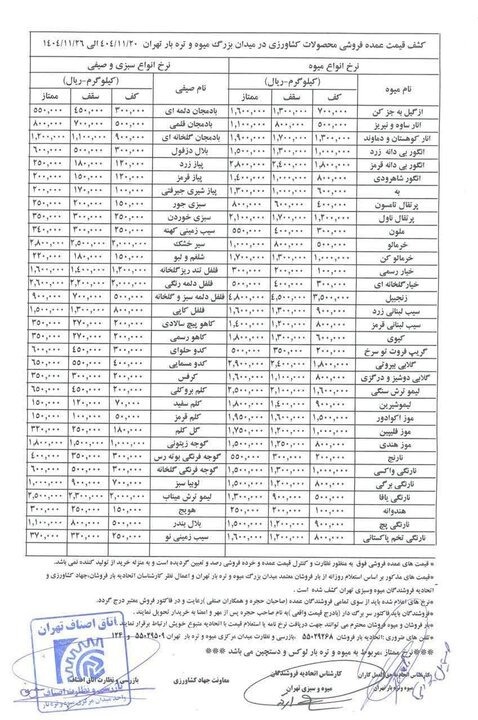 کشف قیمت عمده فروشی محصولات کشاورزی در میدان بزرگ میوه و تره بار تهران ۴۰۴/۱۱/۲۰ الی ۱۴۰۴/۱۱/۲۶
نرخ انواع میوه نرخ انواع سبزی و صیفی
نام میوه (کیلوگرم-ریال) نام صیفی (کیلوگرم-ریال)
کف سقف ممتاز کف سقف ممتاز
ازگیل به جز کن ۷۰۰,۰۰۰ ۱,۳۰۰,۰۰۰ ۱,۶۰۰,۰۰۰ بادمجان دلمه ای ۳۰۰,۰۰۰ ۴۵۰,۰۰۰ ۵۵۰,۰۰۰
انار ساوه و نیریز ۵۰۰,۰۰۰ ۸۰۰,۰۰۰ ۱,۱۰۰,۰۰۰ بادمجان قلمی ۵۰۰,۰۰۰ ۷۰۰,۰۰۰ ۸۰۰,۰۰۰
انار کوهستان و دماوند ۱,۳۰۰,۰۰۰ ۱,۷۰۰,۰۰۰ ۱,۹۰۰,۰۰۰ بادمجان گلخانه ای ۹۰۰,۰۰۰ ۱,۱۰۰,۰۰۰ ۱,۲۰۰,۰۰۰
انگور بی دانه زرد ۱,۰۰۰,۰۰۰ ۱,۳۰۰,۰۰۰ ۱,۵۰۰,۰۰۰ بلال دزفول ۳۰۰,۰۰۰ ۵۰۰,۰۰۰ ۶۰۰,۰۰۰
انگور بی دانه قرمز ۱,۸۰۰,۰۰۰ ۲,۴۰۰,۰۰۰ ۲,۸۰۰,۰۰۰ پیاز زرد ۱۲۰,۰۰۰ ۱۸۰,۰۰۰ ۲۵۰,۰۰۰
انگور شاهرودی ۱,۰۰۰,۰۰۰ پیاز قرمز ۱۲۰,۰۰۰ ۱۵۰,۰۰۰ ۲۰۰,۰۰۰
به ۶۰۰,۰۰۰ ۱,۰۰۰,۰۰۰ پیاز شیری جیرفتی ۱۰۰,۰۰۰ ۱۷۰,۰۰۰ ۲۰۰,۰۰۰
پرتقال تامسون ۴۰۰,۰۰۰ ۶۰۰,۰۰۰ ۸۰۰,۰۰۰ سبزی جور ۱۵۰,۰۰۰ ۲۰۰,۰۰۰ ۲۵۰,۰۰۰
پرتقال ناول ۱,۲۰۰,۰۰۰ ۱,۷۰۰,۰۰۰ ۲,۱۰۰,۰۰۰ سبزی خوردن ۲۵۰,۰۰۰ ۳۰۰,۰۰۰ ۳۵۰,۰۰۰
ملون ۳۰۰,۰۰۰ ۴۰۰,۰۰۰ ۵۵۰,۰۰۰ سیب زمینی کهنه ۲۰۰,۰۰۰ ۳۰۰,۰۰۰ ۳۴۰,۰۰۰
خرمالو ۵۰۰,۰۰۰ ۸۰۰,۰۰۰ ۱,۰۰۰,۰۰۰ سیر خشک ۲,۰۰۰,۰۰۰ ۲,۵۰۰,۰۰۰ ۲,۸۰۰,۰۰۰
خرمالو کن ۱,۰۰۰,۰۰۰ ۱,۳۰۰,۰۰۰ ۱,۷۰۰,۰۰۰ شلغم و لبو ۱۲۰,۰۰۰ ۱۸۰,۰۰۰ ۲۲۰,۰۰۰
خیار رسمی ۱۰۰,۰۰۰ ۲۰۰,۰۰۰ ۳۰۰,۰۰۰ فلفل تند ریز گلخانه ۱,۲۰۰,۰۰۰ ۱,۴۰۰,۰۰۰ ۱,۶۰۰,۰۰۰
خیار گلخانه ای ۳۰۰,۰۰۰ ۴۰۰,۰۰۰ ۵۰۰,۰۰۰ فلفل دلمه رنگی ۲,۰۰۰,۰۰۰ ۲,۲۰۰,۰۰۰ ۲,۶۰۰,۰۰۰
زنجبیل ۳,۵۰۰,۰۰۰ ۴,۵۰۰,۰۰۰ ۴,۸۰۰,۰۰۰ فلفل دلمه سبز و گلخانه ۵۰۰,۰۰۰ ۷۰۰,۰۰۰ ۹۰۰,۰۰۰
سیب لبنانی زرد ۹۰۰,۰۰۰ ۱,۳۰۰,۰۰۰ ۱,۶۰۰,۰۰۰ فلفل کاپی ۸۰۰,۰۰۰ ۱,۳۰۰,۰۰۰ ۱,۵۰۰,۰۰۰
سیب لبنانی قرمز ۸۰۰,۰۰۰ ۱,۲۰۰,۰۰۰ ۱,۴۰۰,۰۰۰ کاهو پیچ سالادی ۲۰۰,۰۰۰ ۲۷۰,۰۰۰ ۳۵۰,۰۰۰
کیوی ۱,۳۰۰,۰۰۰ ۱,۸۰۰,۰۰۰ کاهو رسمی ۲۰۰,۰۰۰ ۲۷۰,۰۰۰ ۳۵۰,۰۰۰
گریپ فروت تو سرخ ۲۰۰,۰۰۰ ۳۵۰,۰۰۰ ۵۰۰,۰۰۰ کدو حلوای ۳۰۰,۰۰۰ ۴۵۰,۰۰۰ ۶۰۰,۰۰۰
گلابی بیروتی ۱,۸۰۰,۰۰۰ ۲,۴۰۰,۰۰۰ ۲,۹۰۰,۰۰۰ کدو مسمایی ۴۰۰,۰۰۰ ۵۵۰,۰۰۰ ۶۵۰,۰۰۰
گلابی دوشیز و درگزی ۸۰۰,۰۰۰ ۱,۱۰۰,۰۰۰ ۱,۶۰۰,۰۰۰ کرفس ۲۰۰,۰۰۰ ۳۰۰,۰۰۰ ۳۵۰,۰۰۰
لیمو ترش سنگی ۱,۶۰۰,۰۰۰ ۲,۱۰۰,۰۰۰ ۲,۵۰۰,۰۰۰ کلم بروکلی ۲۰۰,۰۰۰ ۵۰۰,۰۰۰ ۶۵۰,۰۰۰
لیموشیرین ۹۰۰,۰۰۰ ۱,۴۰۰,۰۰۰ ۱,۸۰۰,۰۰۰ کلم سفید ۷۰,۰۰۰ ۱۲۰,۰۰۰ ۱۵۰,۰۰۰
موز اکوادور ۱,۶۰۰,۰۰۰ ۱,۷۵۰,۰۰۰ ۱,۹۵۰,۰۰۰ کلم قرمز ۵۰,۰۰۰ ۱۰۰,۰۰۰ ۱۵۰,۰۰۰
موز فلیپین ۱,۲۰۰,۰۰۰ ۱,۵۰۰,۰۰۰ ۱,۷۵۰,۰۰۰ گل کلم ۱۸۰,۰۰۰ ۲۵۰,۰۰۰ ۳۲۰,۰۰۰
موز هندی ۸۰۰,۰۰۰ ۱,۲۵۰,۰۰۰ ۱,۵۰۰,۰۰۰ گوجه زیتونی ۱,۰۰۰,۰۰۰ ۱,۵۰۰,۰۰۰ ۱,۸۰۰,۰۰۰
نارنج ۲۰۰,۰۰۰ ۳۰۰,۰۰۰ ۵۵۰,۰۰۰ گوجه فرنگی بوته رس ۲۰۰,۰۰۰ ۳۵۰,۰۰۰ ۴۰۰,۰۰۰
نارنگی واکسی ۱,۰۰۰,۰۰۰ ۱,۳۰۰,۰۰۰ ۱,۵۰۰,۰۰۰ گوجه فرنگی گلخانه ۳۰۰,۰۰۰ ۵۰۰,۰۰۰ ۶۰۰,۰۰۰
نارنگی یافا ۵۰۰,۰۰۰ ۹۰۰,۰۰۰ ۱,۳۰۰,۰۰۰ لیمو ترش میناب ۲,۰۰۰,۰۰۰ ۲,۳۰۰,۰۰۰ ۲,۵۰۰,۰۰۰
هندوانه ۱۰۰,۰۰۰ ۲۰۰,۰۰۰ ۳۰۰,۰۰۰ هویج ۱۵۰,۰۰۰ ۲۵۰,۰۰۰ ۳۰۰,۰۰۰
نارنگی پچ ۱,۲۰۰,۰۰۰ ۱,۵۰۰,۰۰۰ بلال بندر ۵۰۰,۰۰۰ ۸۰۰,۰۰۰ ۱,۱۰۰,۰۰۰
نارنگی تخم پاکستانی ۸۰۰,۰۰۰ ۱,۲۰۰,۰۰۰ ۱,۶۰۰,۰۰۰ سیب زمینی نو ۲۲۰,۰۰۰ ۳۲۰,۰۰۰ ۳۷۰,۰۰۰
*قیمت های عمده فروشی فوق به منظور نظارت و کنترل قیمت عمده و خرده فروشی رصد و تعیین گردیده است و به منزله خرید از تولید کننده نمی باشد.
*قیمت های مذکور بر اساس استعلام روزانه از بار فروشان معتمد میدان بزرگ میوه و تره بار تهران و اعمال نظر کارشناسان اتحادیه بار فروشان، جهاد کشاورزی و
اتحادیه فروشندگان میوه وسبزی تهران کشف شده است .
*نرخ های اعلام شده باید از سوی تمامی فروشندگان عمده (صاحبان حجره و همکاران صنفی) رعایت و در فاکتور فروش معتبر درج گردد.
*نرخ ممتاز ،مربوط به میوه و تره بار لوکس و دستچین می باشد***
میوه و تره بار تهران
کارشناس اتحادیه فروشندگان
میوه و سبزی تهران
معاونت جهاد کشاورزی
بازرسی و نظارت اتاق اصناف
اتاق اصناف تهران
بازرسی و نظارت اصناف
واحد میدان مرکزی میوه و تره بار